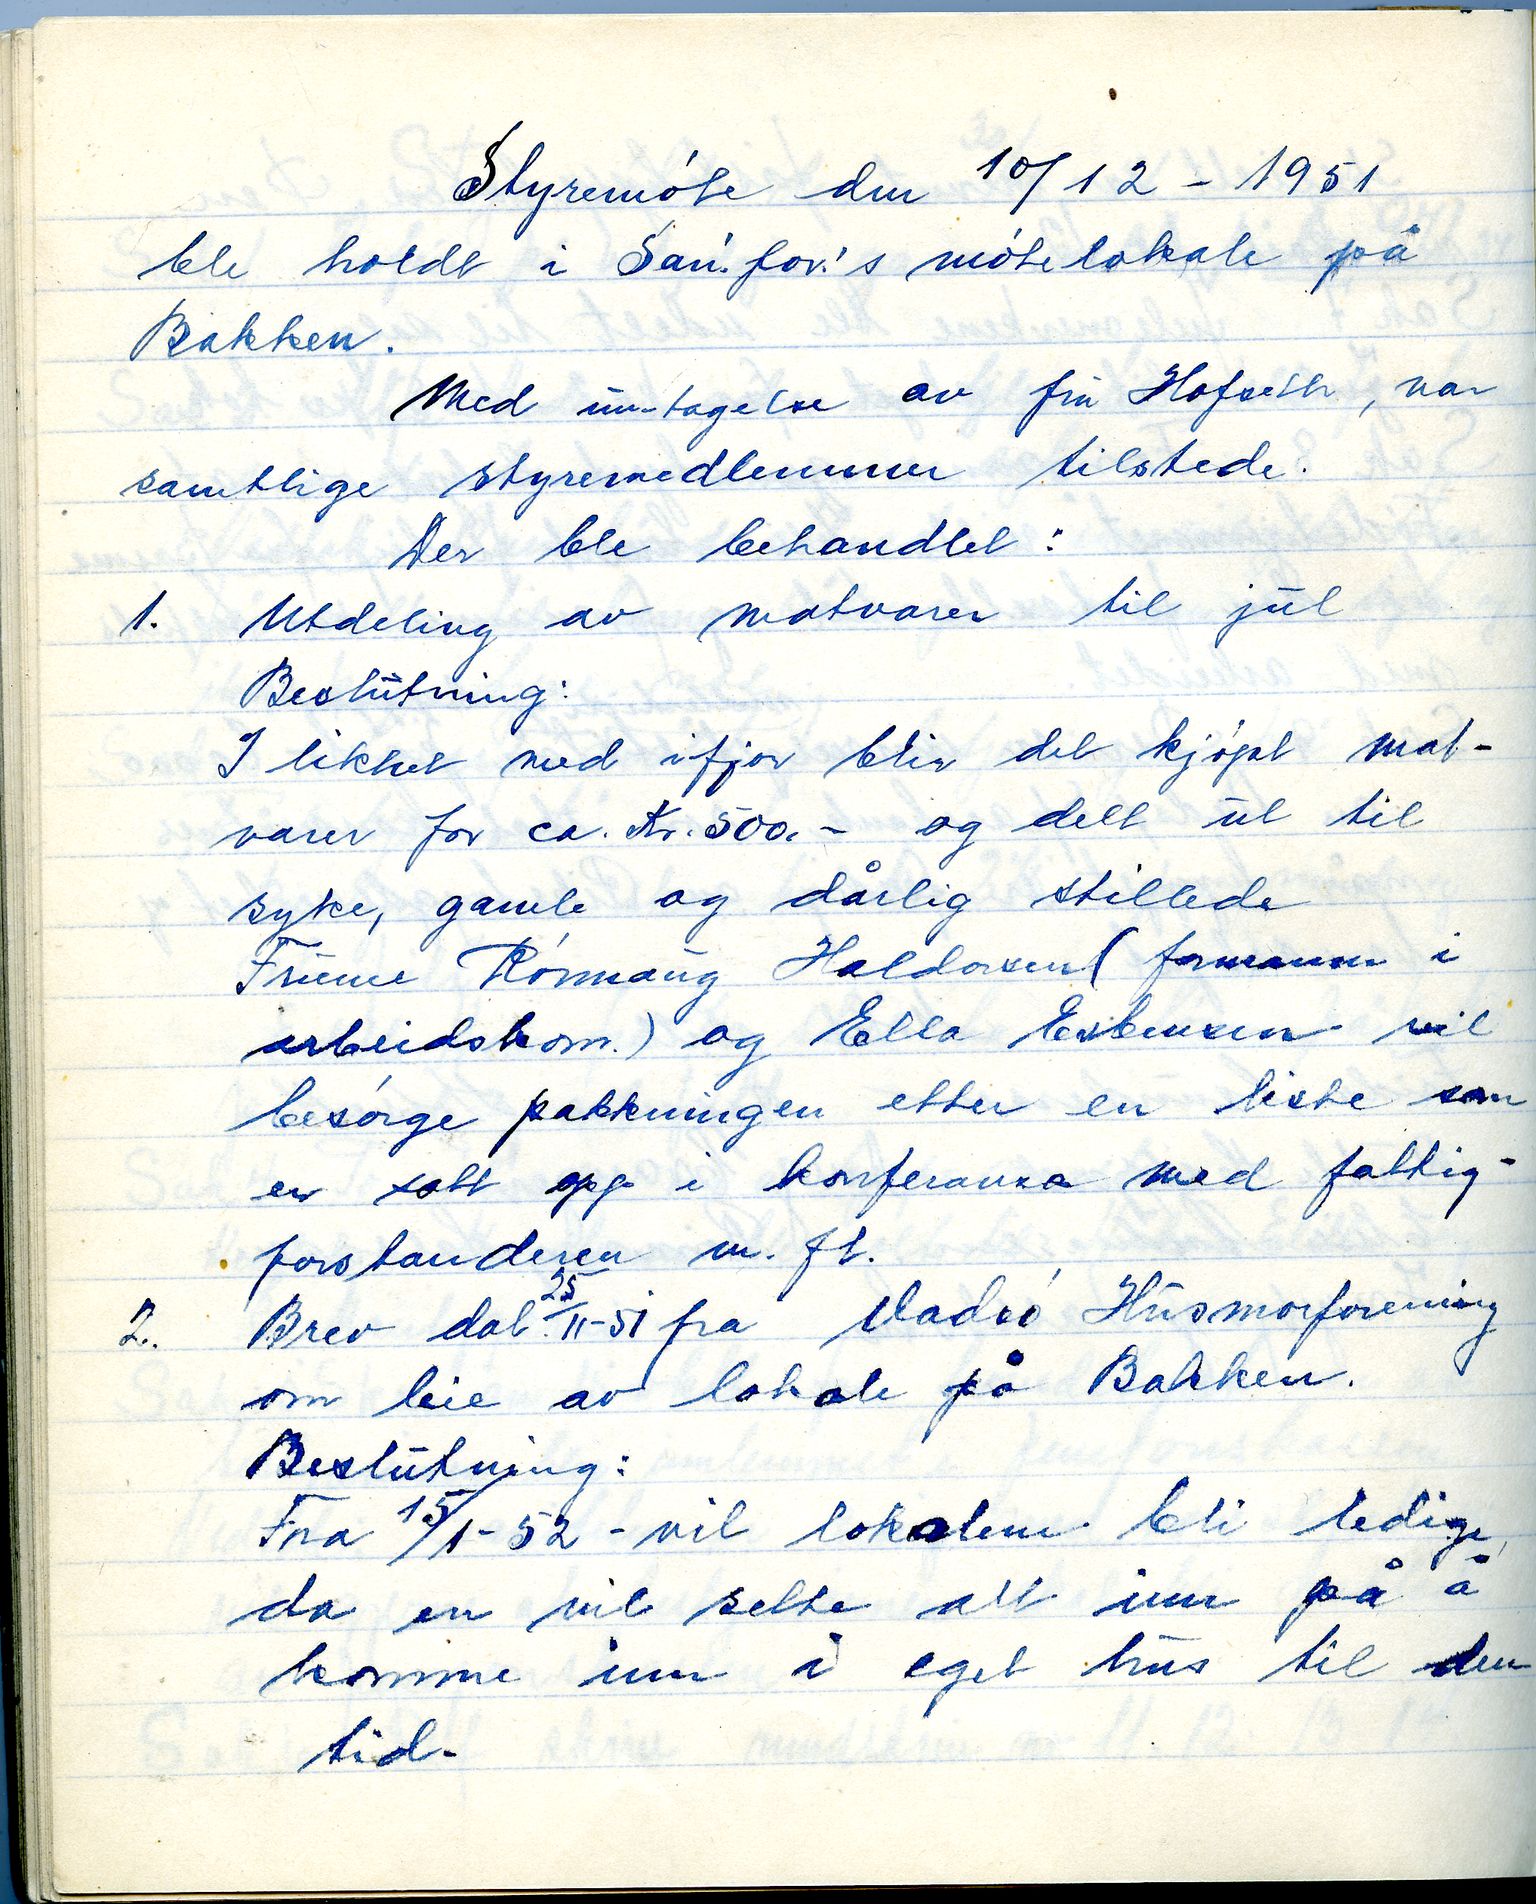 Styremöte den 10/12 - 1951
ble holdt i San. for.'s mötelokale på
Bakken.
Med untagelse av fru Hofseth, var
samtlige styremedlemmer tilstede.
Der ble behandlet:
1. Utdeling av matvarer til jul
Beslutning:
I likhet med ifjor blir det kjöpt mat-
varer for ca. Kr. 500.- og delt ut til
syke, gamle og dårlig stillede
Fruene Haldorsen (formann i
arbeidskom.) og Ella Esbensen vil
besörge pakkningen etter en liste som
er satt opp i konferanse med fattig-
forstanderen m. fl.
2. Brev dat. 25/11-51 fra Vadsö Husmorforening
om leie av lokale på Bakken.
Beslutning:
Fra 15/1-52 - vil lokalene bli ledige,
da en vil sette alt inn på å
komme inn i eget hus til den
tid.